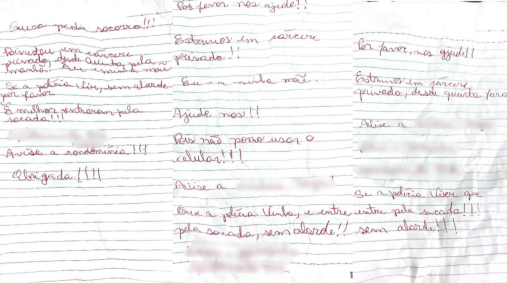 peço socorro!!!
em cárcere
privado, desde Quinta pela
manhã. Eu e minha mãe
Se a polícia vier, sem alarde
por favor
É melhor entrarem pela
sacada!!!
Avise a condomínia!!!
Obrigada!!!!
Por favor nos ajude!!
Estamos em cárcere
privado!!
Eu e a minha mãe.
Ajude nos!!
Pois não posso usar o
celular!!!
Avise a
Que a polícia venha, e entre
pela sacada, sem alarde!!
Por favor, nos ajude!!
Estamos em cárcere
privado, desde quinta feira
Avise a
Se a polícia vier que
entre pela sacada!!!
sem alarde!!!